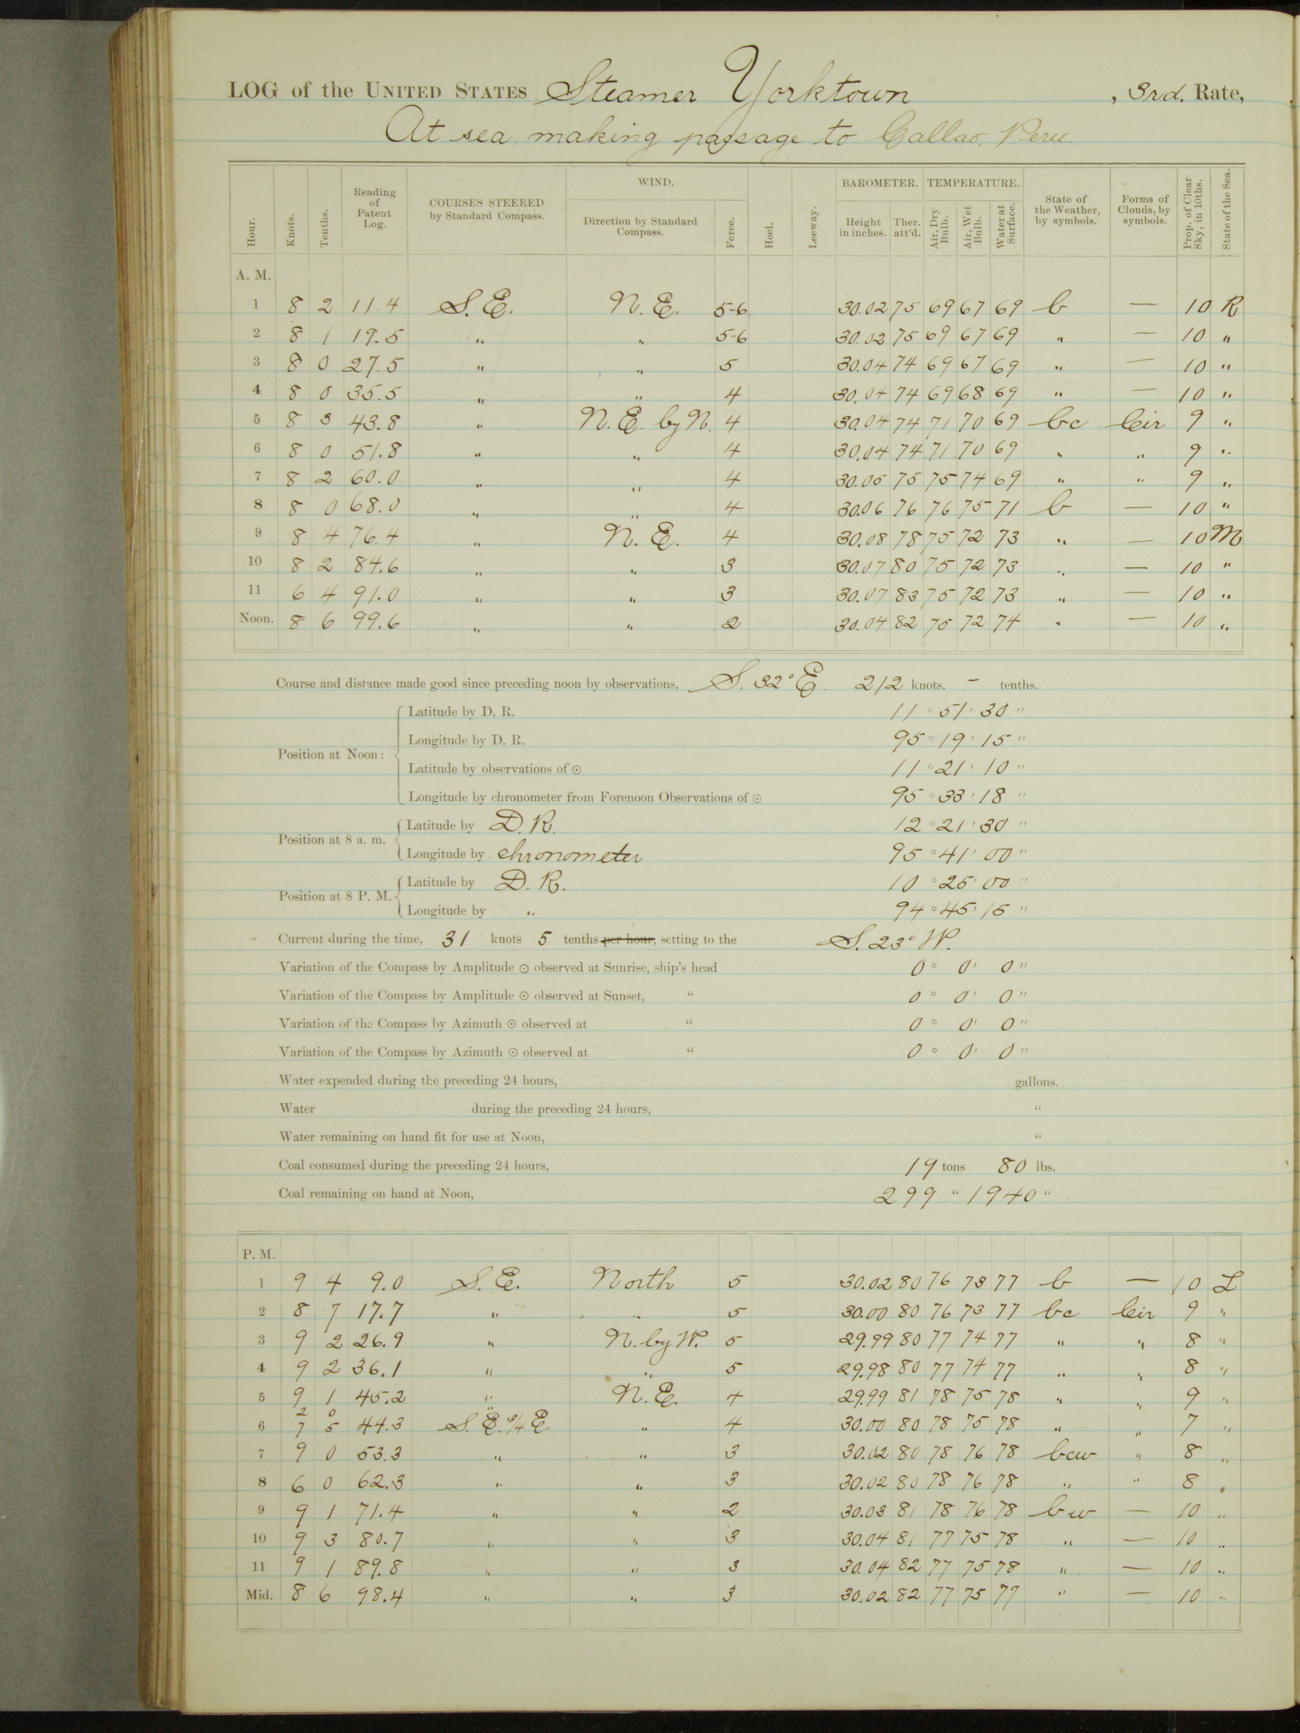 LOG of the UNITED STATES Steamer Yorktown, 3rd. Rate,
At sea making passage to Callao, Peru.
Hour. Knots. Tenths. Reading of Patent Log. COURSES STEERED by Standard Compass. WIND. Direction by Standard Compass. Force. Heel. Leeway. BAROMETER. Height in inches. Ther. att'd. TEMPERATURE. Air, Dry Bulb. Air, Wet Bulb. Water at Surface. State of the Weather, by symbols. Forms of Clouds, by symbols. Prop. of Clear Sky, in 10ths. State of the Sea.
A. M.
1 8 2 11.4 S.E. N.E. 5-6 30.02 75 69 67 69 b — 10 R
2 8 1 19.5 " " 5-6 30.02 75 69 67 69 " — 10 "
3 8 0 27.5 " " 5 30.04 74 69 67 69 " — 10 "
4 8 0 35.5 " " 4 30.04 74 69 68 69 " — 10 "
5 8 3 43.8 " N.E. by N. 4 30.04 74 71 70 69 bc Cir 9 "
6 8 0 51.8 " " 4 30.04 74 71 70 69 " " 9 "
7 8 2 60.0 " " 4 30.05 75 75 74 69 " " 9 "
8 8 0 68.0 " " 4 30.06 76 76 75 71 b — 10 "
9 8 4 76.4 " N.E. 4 30.08 78 75 72 73 " — 10 M
10 8 2 84.6 " " 3 30.07 80 75 72 73 " — 10 "
11 6 4 91.0 " " 3 30.07 83 75 72 73 " — 10 "
Noon. 8 6 99.6 " " 2 30.04 82 75 72 74 " — 10 "
Course and distance made good since preceding noon by observations, S. 32° E. 212 knots. - tenths.
Position at Noon: Latitude by D. R. 11° 51' 30"
Longitude by D. R. 95° 19' 15"
Latitude by observations of ☉ 11° 21' 10"
Longitude by chronometer from Forenoon Observations of ☉ 95° 33' 18"
Position at 8 a. m. Latitude by D.R. 12° 21' 30"
Longitude by chronometer 95° 41' 00"
Position at 8 P. M. Latitude by D.R. 10° 25' 00"
Longitude by " 94° 45' 15"
Current during the time, 31 knots 5 tenths per hour, setting to the S. 23° W.
Variation of the Compass by Amplitude ☉ observed at Sunrise, ship's head 0° 0' 0"
Variation of the Compass by Amplitude ☉ observed at Sunset, " 0° 0' 0"
Variation of the Compass by Azimuth ☉ observed at " 0° 0' 0"
Variation of the Compass by Azimuth ☉ observed at " 0° 0' 0"
Water expended during the preceding 24 hours, gallons.
Water during the preceding 24 hours, "
Water remaining on hand fit for use at Noon, "
Coal consumed during the preceding 24 hours, 19 tons 80 lbs.
Coal remaining on hand at Noon, 299 " 1940 "
P. M.
1 9 4 9.0 S.E. North 5 30.02 80 76 73 77 b — 10 L
2 8 7 17.7 " " 5 30.00 80 76 73 77 bc Cir 9 "
3 9 2 26.9 " N. by W. 5 29.99 80 77 74 77 " " 8 "
4 9 2 36.1 " " 5 29.98 80 77 74 77 " " 8 "
5 9 1 45.2 " N.E. 4 29.99 81 78 75 78 " " 9 "
2 0 "
6 7 5 44.3 S.E. 3/4 E " 4 30.00 80 78 75 78 " " 7 "
7 9 0 53.3 " " 3 30.02 80 78 76 78 bcw " 8 "
8 6 0 62.3 " " 3 30.02 80 78 76 78 " " 8 "
9 9 1 71.4 " " 2 30.03 81 78 76 78 bw — 10 "
10 9 3 80.7 " " 3 30.04 81 77 75 78 " — 10 "
11 9 1 89.8 " " 3 30.04 82 77 75 78 " — 10 "
Mid. 8 6 98.4 " " 3 30.02 82 77 75 77 " — 10 "